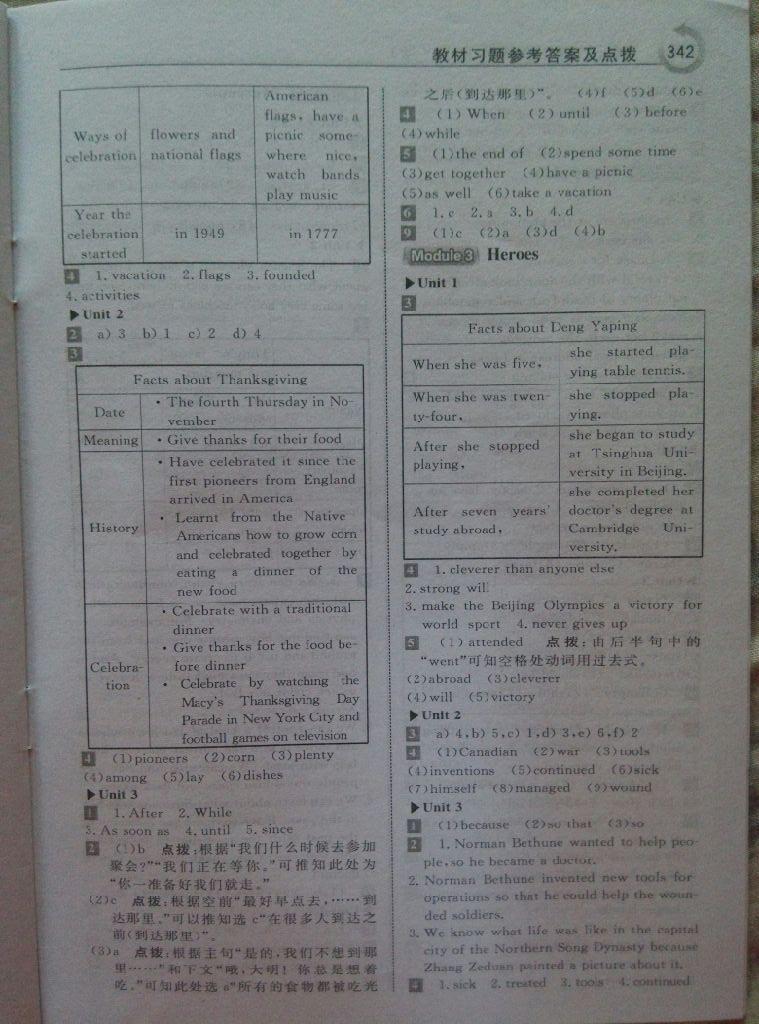 教材习题参考答案及点拨 342
Ways of celebration
flowers and national flags
American flags, have a picnic some-where nice, watch bands play music
Year the celebration started
in 1949
in 1777
4 1. vacation 2. flags 3. founded
4. activities
▶Unit 2
2 a) 3 b) 1 c) 2 d) 4
3
Facts about Thanksgiving
Date
• The fourth Thursday in No-
vember
Meaning
• Give thanks for their food
History
• Have celebrated it since the
first pioneers from England
arrived in America
• Learnt from the Native
Americans how to grow corn
and celebrated together by
eating a dinner of the
new food
Celebra-
tion
• Celebrate with a traditional
dinner
• Give thanks for the food be-
fore dinner
• Celebrate by watching the
Macy's Thanksgiving Day
Parade in New York City and
football games on television
4 (1)pioneers (2)corn (3)plenty
(4)among (5)lay (6)dishes
▶Unit 3
1 1. After 2. While
3. As soon as 4. until 5. since
2 (1)b 点拨:根据“我们什么时候去参加
聚会?”“我们正在等你。”可推知此处为
“你一准备好我们就走。”
(2)c 点拨:根据空前“最好早点去,……到
达那里。”可以推知选 c“在很多人到达之
前(到达那里)”。
(3)a 点拨:根据主句“是的,我们不想到那
里……”和下文“哦,大明!你总是想着
吃。”可知此处选 a“所有的食物都被吃光
之后(到达那里)”。 (4)f (5)d (6)e
4 (1) When (2) until (3) before
(4)while
5 (1)the end of (2)spend some time
(3)get together (4)have a picnic
(5)as well (6)take a vacation
6 1. c 2. a 3. b 4. d
9 (1)c (2)a (3)d (4)b
Module 3 Heroes
▶Unit 1
3
Facts about Deng Yaping
When she was five,
she started pla-
ying table tennis.
When she was twen-
ty-four,
she stopped pla-
ying.
After she stopped
playing,
she began to study
at Tsinghua Uni-
versity in Beijing.
After seven years'
study abroad,
she completed her
doctor's degree at
Cambridge Uni-
versity.
4 1. cleverer than anyone else
2. strong will
3. make the Beijing Olympics a victory for
world sport 4. never gives up
5 (1) attended 点拨:由后半句中的
“went”可知空格处动词用过去式。
(2)abroad (3)cleverer
(4)will (5)victory
▶Unit 2
3 a) 4, b) 5, c) 1, d) 3, e) 6, f) 2
4 (1)Canadian (2)war (3)tools
(4)inventions (5)continued (6)sick
(7)himself (8)managed (9)wound
▶Unit 3
1 (1)because (2)so that (3)so
2 1. Norman Bethune wanted to help peo-
ple, so he became a doctor.
2. Norman Bethune invented new tools for
operations so that he could help the woun-
ded soldiers.
3. We know what life was like in the capital
city of the Northern Song Dynasty because
Zhang Zeduan painted a picture about it.
4 1. sick 2. treated 3. tools 4. continued